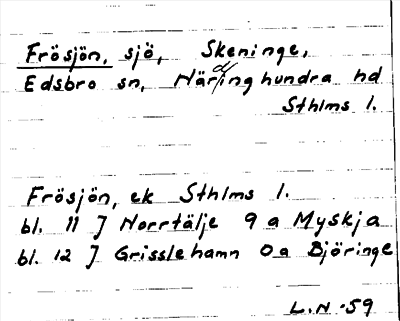 Frösjön, sjö, Skeninge,
Edsbro sn, Närdinghundra hd
Sthlms l.
Frösjön, ek Sthlms l.
bl. 11 J Norrtälje 9 a Myskja
bl. 12 J Grisslehamn 0 a Björinge
L.N -59